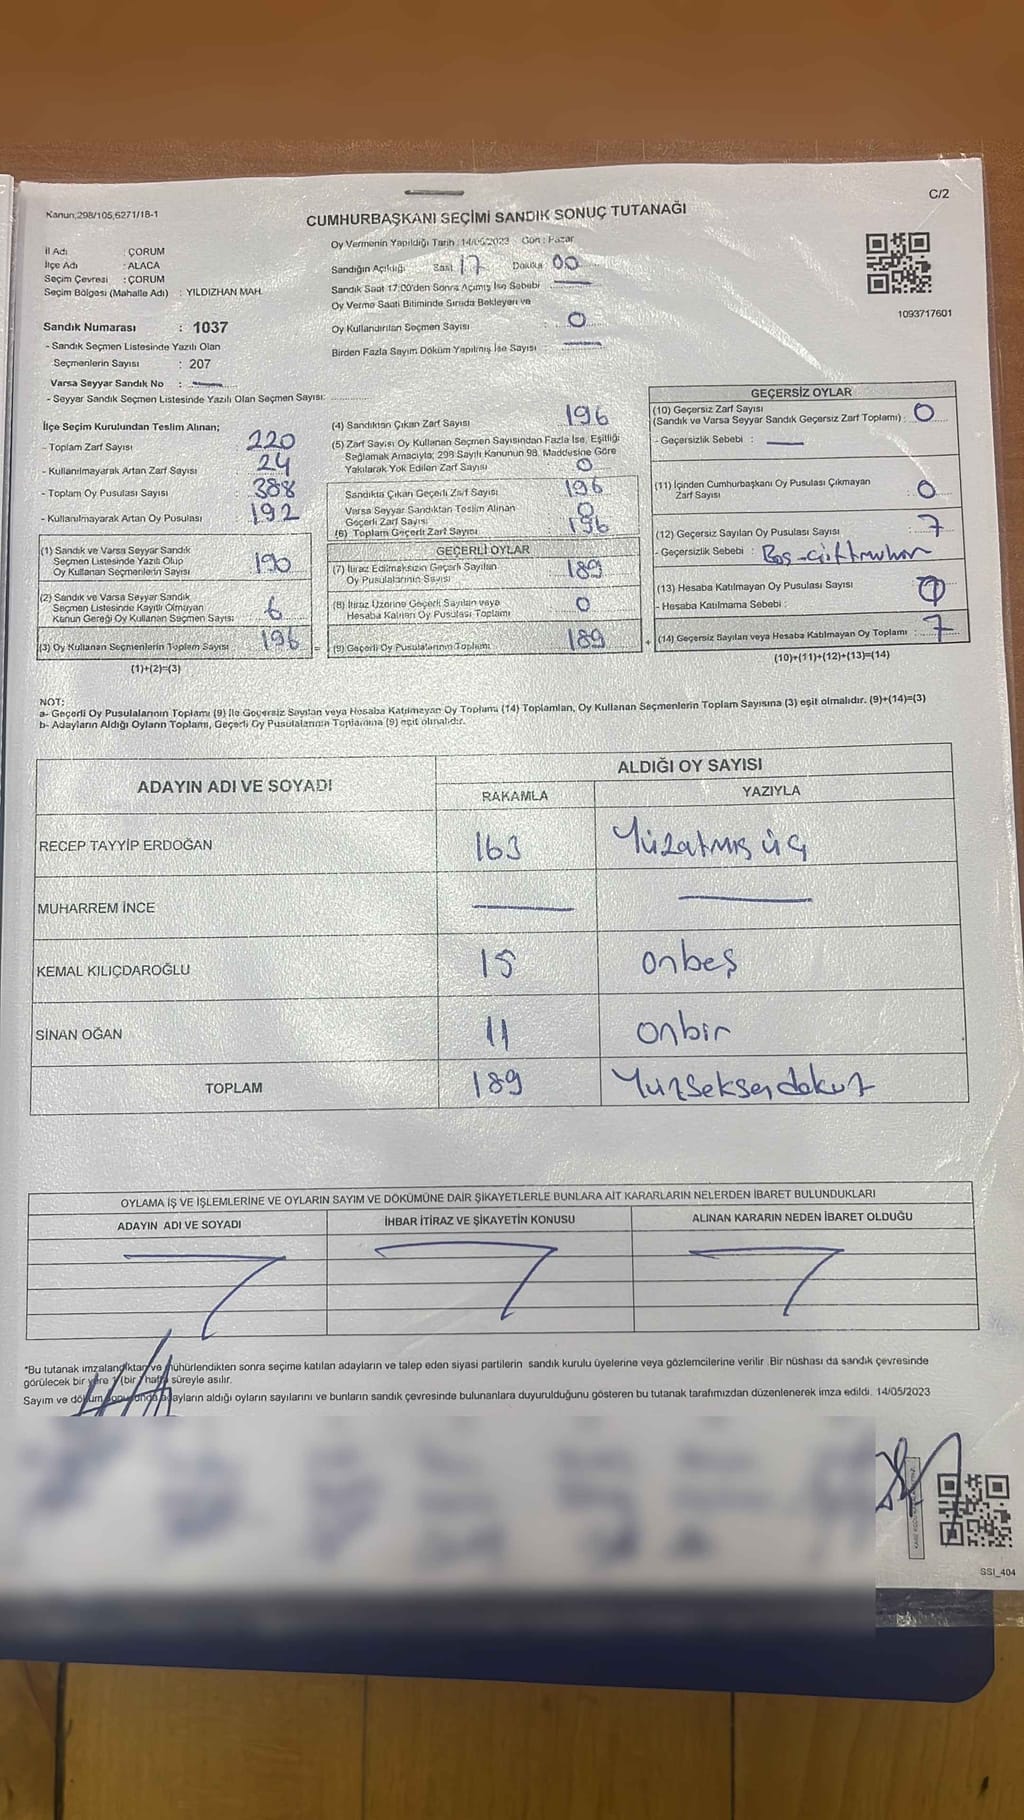 C/2
Kanun,298/105,6271/18-1
CUMHURBAŞKANI SEÇİMİ SANDIK SONUÇ TUTANAĞI
İl Adı : ÇORUM
İlçe Adı : ALACA
Seçim Çevresi : ÇORUM
Seçim Bölgesi (Mahalle Adı) : YILDIZHAN MAH.
Oy Vermenin Yapıldığı Tarih : 14/05/2023 Gün : Pazar
Sandığın Açıldığı Saat 17 Dakika 00
Sandık Saat 17:00'den Sonra Açımış İse Sebebi
Oy Verme Saati Bitiminde Sırada Bekleyen ve
Oy Kullandırılan Seçmen Sayısı : 0
Birden Fazla Sayım Döküm Yapılmış İse Sayısı :
1093717601
Sandık Numarası : 1037
- Sandık Seçmen Listesinde Yazılı Olan
Seçmenlerin Sayısı : 207
Varsa Seyyar Sandık No :
- Seyyar Sandık Seçmen Listesinde Yazılı Olan Seçmen Sayısı:
İlçe Seçim Kurulundan Teslim Alınan;
- Toplam Zarf Sayısı : 220
- Kullanılmayarak Artan Zarf Sayısı : 24
- Toplam Oy Pusulası Sayısı : 388
- Kullanılmayarak Artan Oy Pusulası : 192
(1) Sandık ve Varsa Seyyar Sandık
Seçmen Listesinde Yazılı Olup
Oy Kullanan Seçmenlerin Sayısı : 190
(2) Sandık ve Varsa Seyyar Sandık
Seçmen Listesinde Kayıtlı Olmayan
Kanun Gereği Oy Kullanan Seçmen Sayısı : 6
(3) Oy Kullanan Seçmenlerin Toplam Sayısı 196
(1)+(2)=(3)
(4) Sandıktan Çıkan Zarf Sayısı 196
(5) Zarf Sayısı Oy Kullanan Seçmen Sayısından Fazla İse, Eşitliği
Sağlamak Amacıyla; 298 Sayılı Kanunun 98. Maddesine Göre
Yakılarak Yok Edilen Zarf Sayısı 0
Sandıkta Çıkan Geçerli Zarf Sayısı 196
Varsa Seyyar Sandıktan Teslim Alınan
Geçerli Zarf Sayısı 0
(6) Toplam Geçerli Zarf Sayısı 196
GEÇERLİ OYLAR
(7) İtiraz Edilmeksizin Geçerli Sayılan
Oy Pusulalarının Sayısı 189
(8) İtiraz Üzerine Geçerli Sayılan veya
Hesaba Katılan Oy Pusulası Toplamı 0
= (9) Geçerli Oy Pusulalarının Toplamı 189 +
GEÇERSİZ OYLAR
(10) Geçersiz Zarf Sayısı
(Sandık ve Varsa Seyyar Sandık Geçersiz Zarf Toplamı) : 0
- Geçersizlik Sebebi :
(11) İçinden Cumhurbaşkanı Oy Pusulası Çıkmayan
Zarf Sayısı : 0
(12) Geçersiz Sayılan Oy Pusulası Sayısı : 7
- Geçersizlik Sebebi : Boş-çift mühür
(13) Hesaba Katılmayan Oy Pusulası Sayısı
- Hesaba Katılmama Sebebi :
(14) Geçersiz Sayılan veya Hesaba Katılmayan Oy Toplamı : 7
(10)+(11)+(12)+(13)=(14)
NOT:
a- Geçerli Oy Pusulalarının Toplamı (9) ile Geçersiz Sayılan veya Hesaba Katılmayan Oy Toplamı (14) Toplamları, Oy Kullanan Seçmenlerin Toplam Sayısına (3) eşit olmalıdır. (9)+(14)=(3)
b- Adayların Aldığı Oyların Toplamı, Geçerli Oy Pusulalarının Toplamına (9) eşit olmalıdır.
ADAYIN ADI VE SOYADI
ALDIĞI OY SAYISI
RAKAMLA YAZIYLA
RECEP TAYYİP ERDOĞAN 163 Yüzatmış üç
MUHARREM İNCE
KEMAL KILIÇDAROĞLU 15 onbeş
SİNAN OĞAN 11 onbir
TOPLAM 189 Yüzseksendokuz
OYLAMA İŞ VE İŞLEMLERİNE VE OYLARIN SAYIM VE DÖKÜMÜNE DAİR ŞİKAYETLERLE BUNLARA AİT KARARLARIN NELERDEN İBARET BULUNDUKLARI
ADAYIN ADI VE SOYADI İHBAR İTİRAZ VE ŞİKAYETİN KONUSU ALINAN KARARIN NEDEN İBARET OLDUĞU
*Bu tutanak imzalandıktan ve mühürlendikten sonra seçime katılan adayların ve talep eden siyasi partilerin sandık kurulu üyelerine veya gözlemcilerine verilir. Bir nüshası da sandık çevresinde
görülecek bir yere 1 (bir) hafta süreyle asılır.
Sayım ve döküm sonucunda adayların aldığı oyların sayılarını ve bunların sandık çevresinde bulunanlara duyurulduğunu gösteren bu tutanak tarafımızdan düzenlenerek imza edildi. 14/05/2023
SSI_404